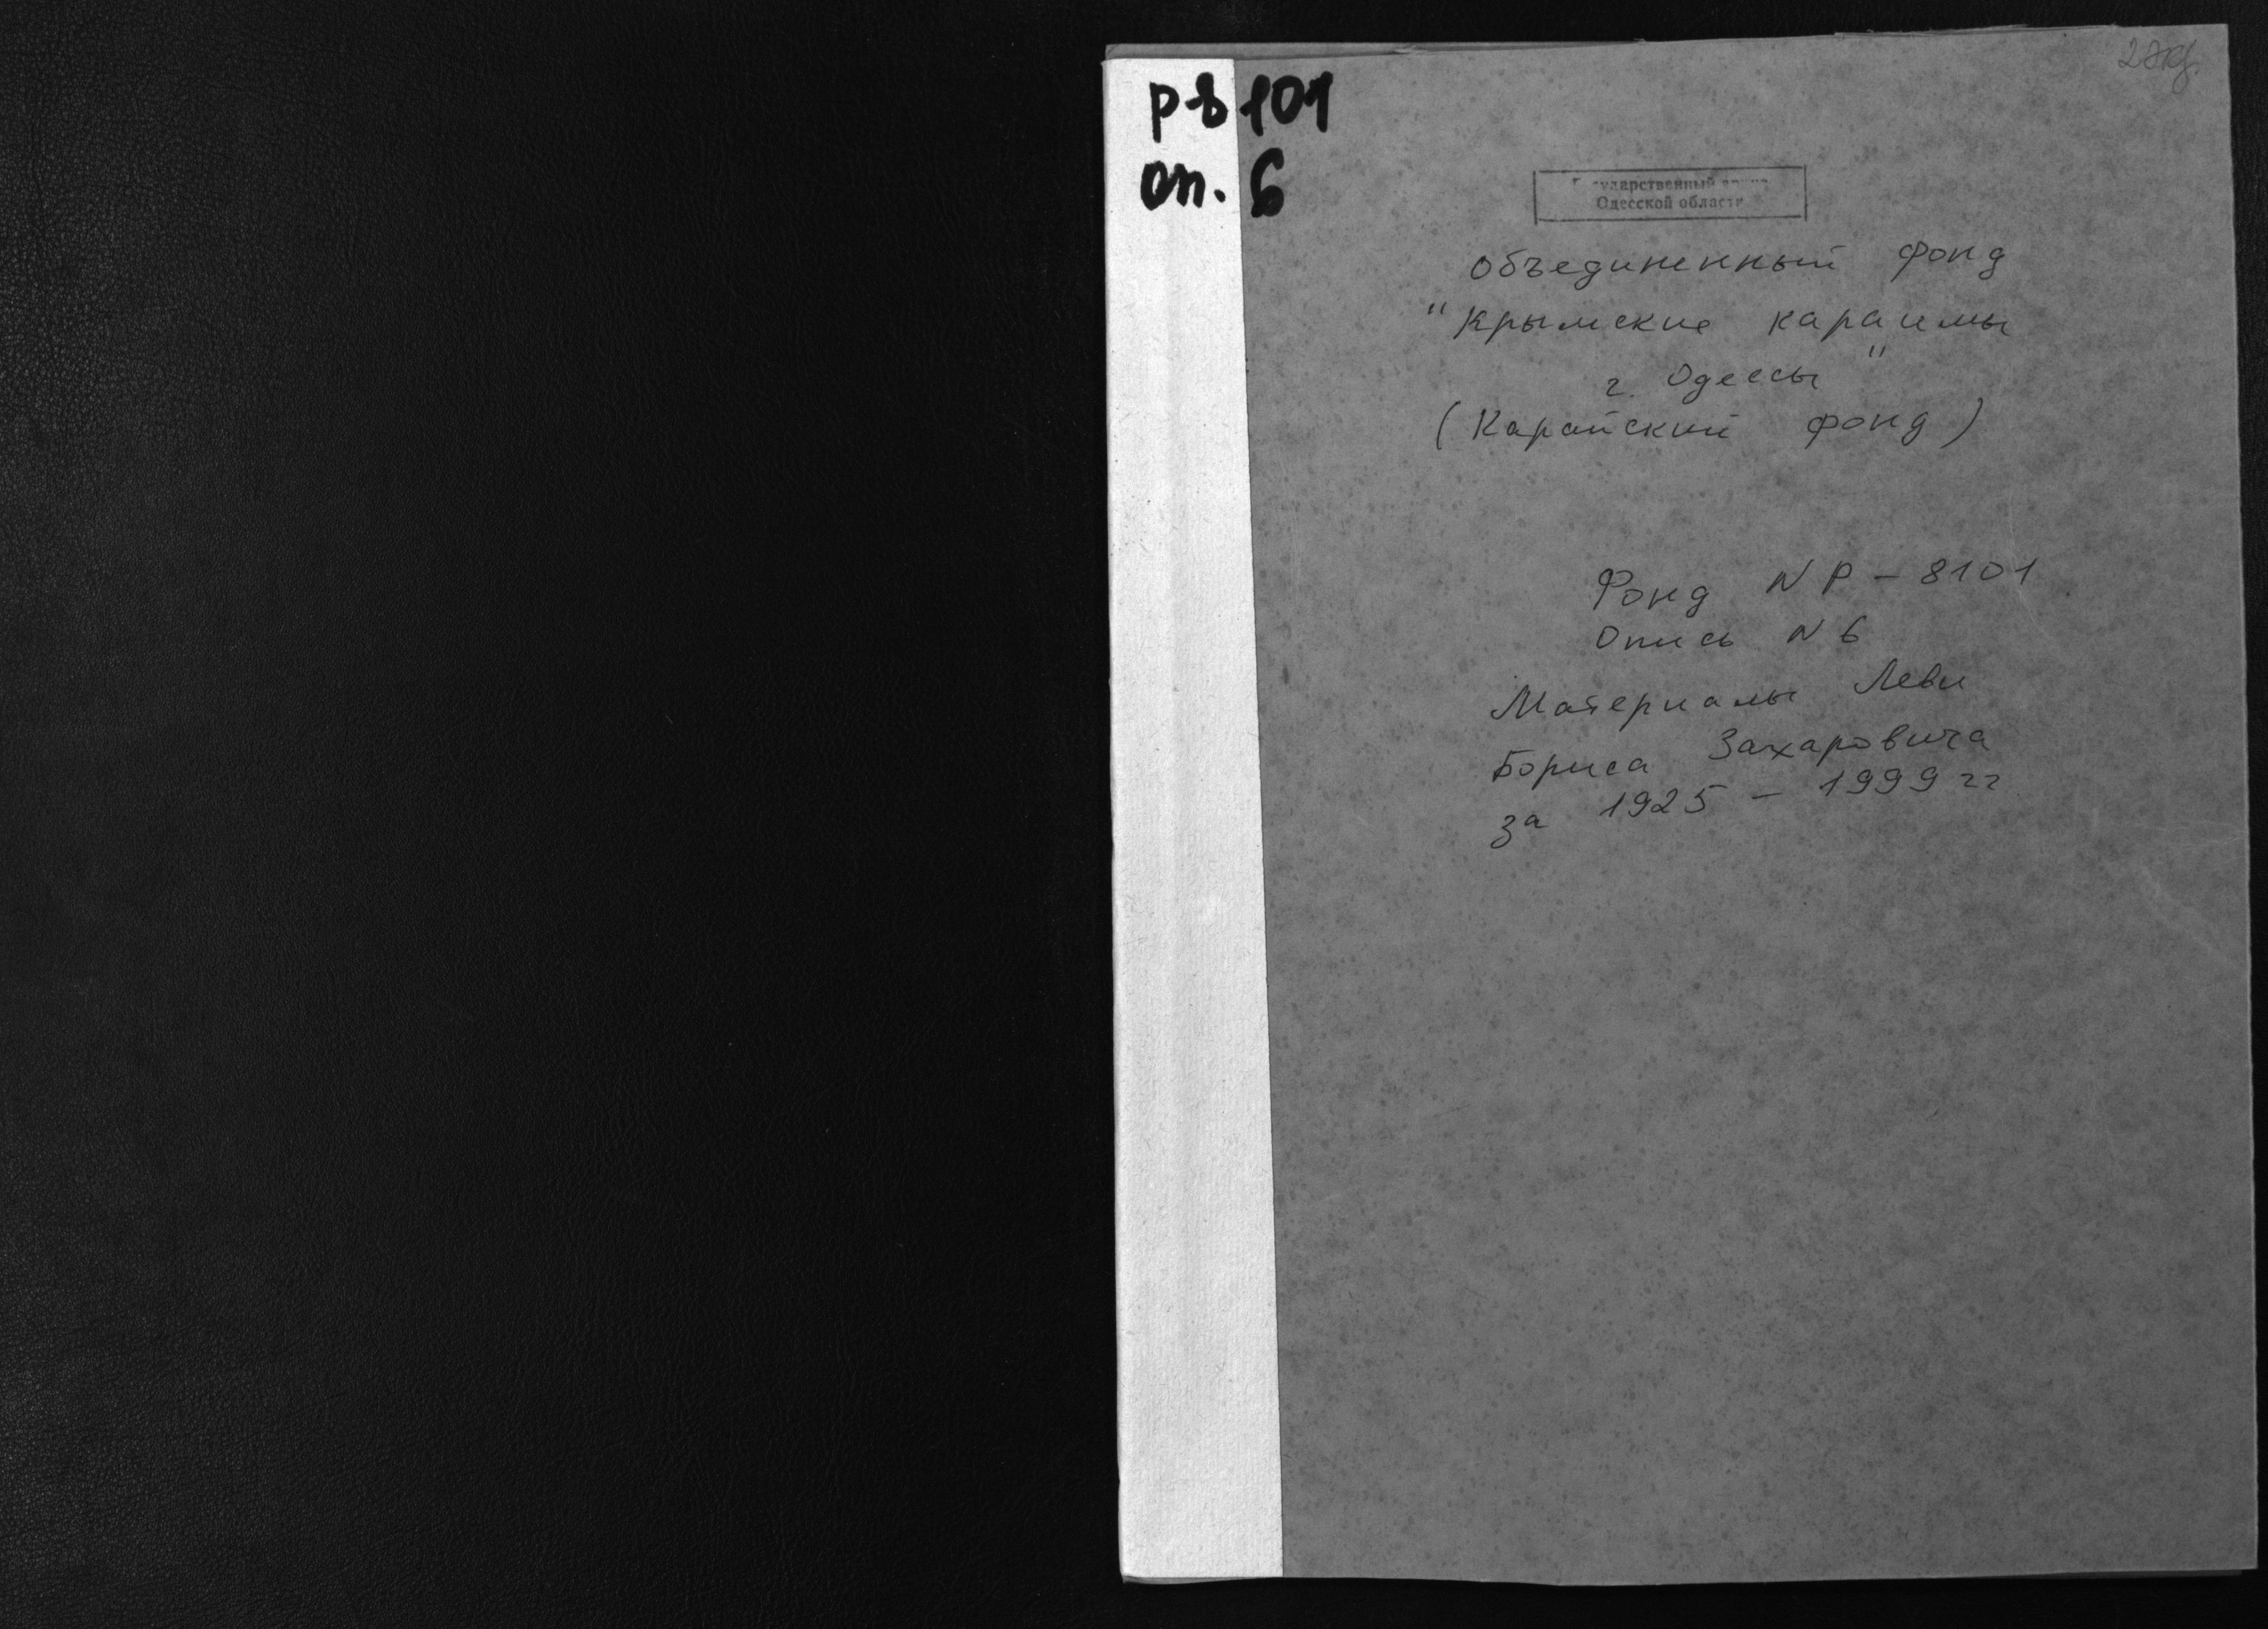 р-8101
оп. 6
2 экз.
Государственный архив
Одесской области
Объединенный фонд
"Крымские караимы
г. Одессы"
(Карайский фонд)
Фонд N Р-8101
Опись N 6
Материалы Леви
Бориса Захаровича
за 1925 - 1999 гг